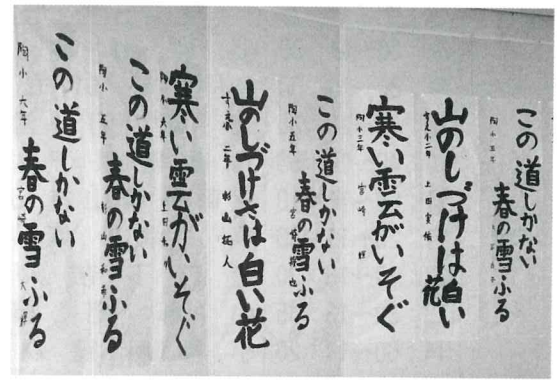 この道しかない
春の雪ふる
陶小三年
山のしづけは白い
花
上田実
寒い雲がいそぐ
陶小三年 宮崎
この道しかない
春の雪ふる
陶小五年 宮崎
山のしづけさは白い花
二年 杉山拓人
寒い雲がいそぐ
陶小六年 上田
この道しかない
春の雪ふる
陶小 五年 杉山和
この道しかない
春の雪ふる
陶小 六年 宮崎大